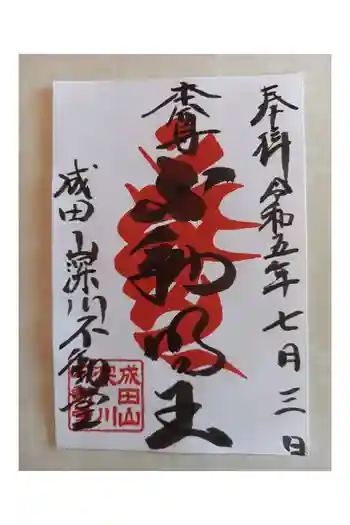 奉拝 令和五年 七月三日
本尊
不動明王
成田山深川不動堂
成田山
深川
不動堂